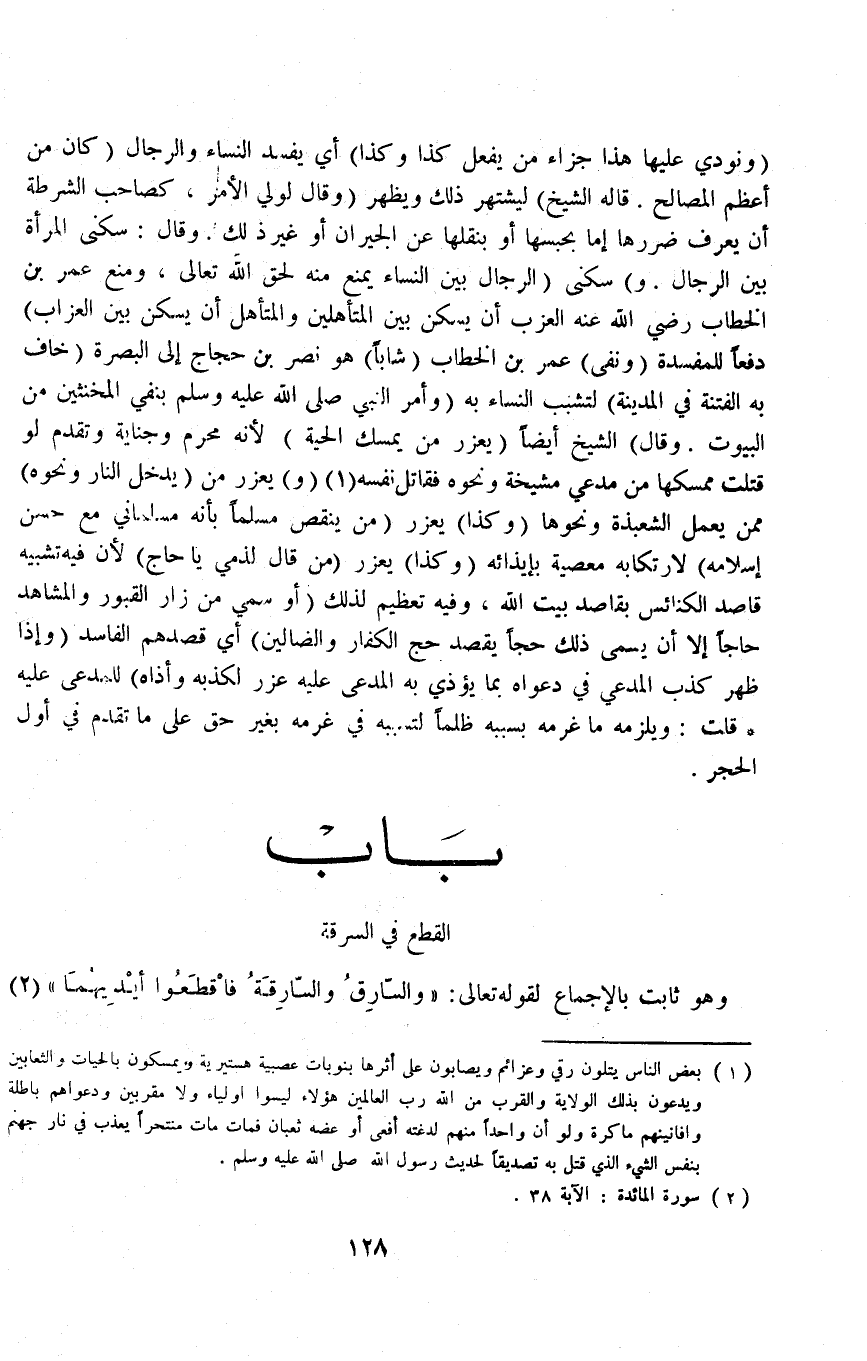 (ونودي عليها هذا جزاء من يفعل كذا وكذا) أي يفسد النساء والرجال (كان من
أعظم المصالح . قاله الشيخ) ليشتهر ذلك ويظهر (وقال لولي الأمر ، كصاحب الشرطة
أن يعرف ضررها إما بحبسها أو بنقلها عن الجيران أو غير ذلك . وقال : سكنى المرأة
بين الرجال . و) سكنى (الرجال بين النساء يمنع منه لحق الله تعالى ، ومنع عمر بن
الخطاب رضي الله عنه العزب أن يسكن بين المتأهلين والمتأهل أن يسكن بين العزاب)
دفعاً للمفسدة (ونفى) عمر بن الخطاب (شاباً) هو نصر بن حجاج إلى البصرة (خاف
به الفتنة في المدينة) لتشبب النساء به (وأمر النبي صلى الله عليه وسلم بنفي المخنثين من
البيوت . وقال) الشيخ أيضاً (يعزر من يمسك الحية ) لأنه محرم وجناية وتقدم لو
قتلت ممسكها من مدعي مشيخة ونحوه فقاتل نفسه(١) (و) يعزر من (يدخل النار ونحوه)
ممن يعمل الشعبذة ونحوها (وكذا) يعزر (من ينقص مسلماً بأنه مسلماني مع حسن
إسلامه) لارتكابه معصية بإيذائه (وكذا) يعزر (من قال لذمي يا حاج) لأن فيه تشبيه
قاصد الكنائس بقاصد بيت الله ، وفيه تعظيم لذلك (أو سمي من زار القبور والمشاهد
حاجاً إلا أن يسمى ذلك حجاً يقصد حج الكفار والضالين) أي قصدهم الفاسد (وإذا
ظهر كذب المدعي في دعواه بما يؤذي به المدعى عليه عزر لكذبه وأذاه) للمدعى عليه
* قلت : ويلزمه ما غرمه بسببه ظلماً لتسببه في غرمه بغير حق على ما تقدم في أول
الحجر .
بَابْ
القطع في السرقة
وهو ثابت بالإجماع لقوله تعالى: « والسّارِقُ والسّارِقَةُ فاقْطَعُوا أيْدِيهُمَا » (٢)
(١) بعض الناس يتلون رقي وعزائم ويصابون على أثرها بنوبات عصبية هستيرية ويمسكون بالحيات والثعابين
ويدعون بذلك الولاية والقرب من الله رب العالمين هؤلاء ليسوا اولياء ولا مقربين ودعواهم باطلة
وافانينهم ماكرة ولو أن واحداً منهم لدغته أفعى أو عضه ثعبان فمات مات منتحراً يعذب في نار جهنم
بنفس الشيء الذي قتل به تصديقاً لحديث رسول الله صلى الله عليه وسلم .
(٢) سورة المائدة : الآية ٣٨ .
١٢٨